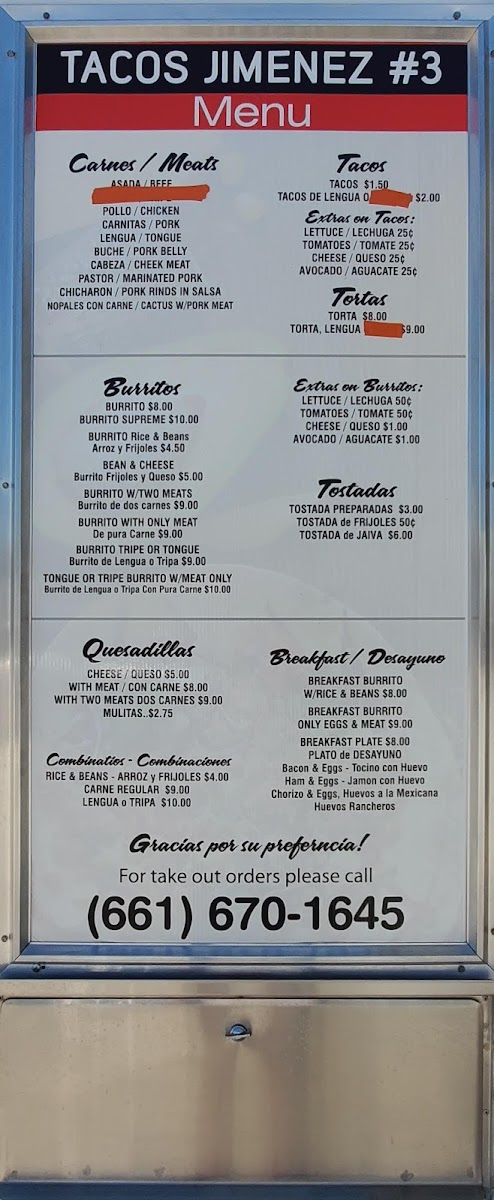 TACOS JIMENEZ #3
Menu
Carnes / Meats
ASADA / BEEF
POLLO / CHICKEN
CARNITAS / PORK
LENGUA / TONGUE
BUCHE / PORK BELLY
CABEZA / CHEEK MEAT
PASTOR / MARINATED PORK
CHICHARON / PORK RINDS IN SALSA
NOPALES CON CARNE / CACTUS W/PORK MEAT
Tacos
TACOS $1.50
TACOS DE LENGUA O $2.00
Extras on Tacos:
LETTUCE / LECHUGA 25¢
TOMATOES / TOMATE 25¢
CHEESE / QUESO 25¢
AVOCADO / AGUACATE 25¢
Tortas
TORTA $8.00
TORTA, LENGUA $9.00
Burritos
BURRITO $8.00
BURRITO SUPREME $10.00
BURRITO Rice & Beans
Arroz y Frijoles $4.50
BEAN & CHEESE
Burrito Frijoles y Queso $5.00
BURRITO W/TWO MEATS
Burrito de dos carnes $9.00
BURRITO WITH ONLY MEAT
De pura Carne $9.00
BURRITO TRIPE OR TONGUE
Burrito de Lengua o Tripa $9.00
TONGUE OR TRIPE BURRITO W/MEAT ONLY
Burrito de Lengua o Tripa Con Pura Carne $10.00
Extras on Burritos:
LETTUCE / LECHUGA 50¢
TOMATOES / TOMATE 50¢
CHEESE / QUESO $1.00
AVOCADO / AGUACATE $1.00
Tostadas
TOSTADA PREPARADAS $3.00
TOSTADA de FRIJOLES 50¢
TOSTADA de JAIVA $6.00
Quesadillas
CHEESE / QUESO $5.00
WITH MEAT / CON CARNE $8.00
WITH TWO MEATS DOS CARNES $9.00
MULITAS..$2.75
Combinatios - Combinaciones
RICE & BEANS - ARROZ y FRIJOLES $4.00
CARNE REGULAR $9.00
LENGUA o TRIPA $10.00
Breakfast / Desayuno
BREAKFAST BURRITO
W/RICE & BEANS $8.00
BREAKFAST BURRITO
ONLY EGGS & MEAT $9.00
BREAKFAST PLATE $8.00
PLATO de DESAYUNO
Bacon & Eggs - Tocino con Huevo
Ham & Eggs - Jamon con Huevo
Chorizo & Eggs, Huevos a la Mexicana
Huevos Rancheros
Gracías por su preferncía!
For take out orders please call
(661) 670-1645